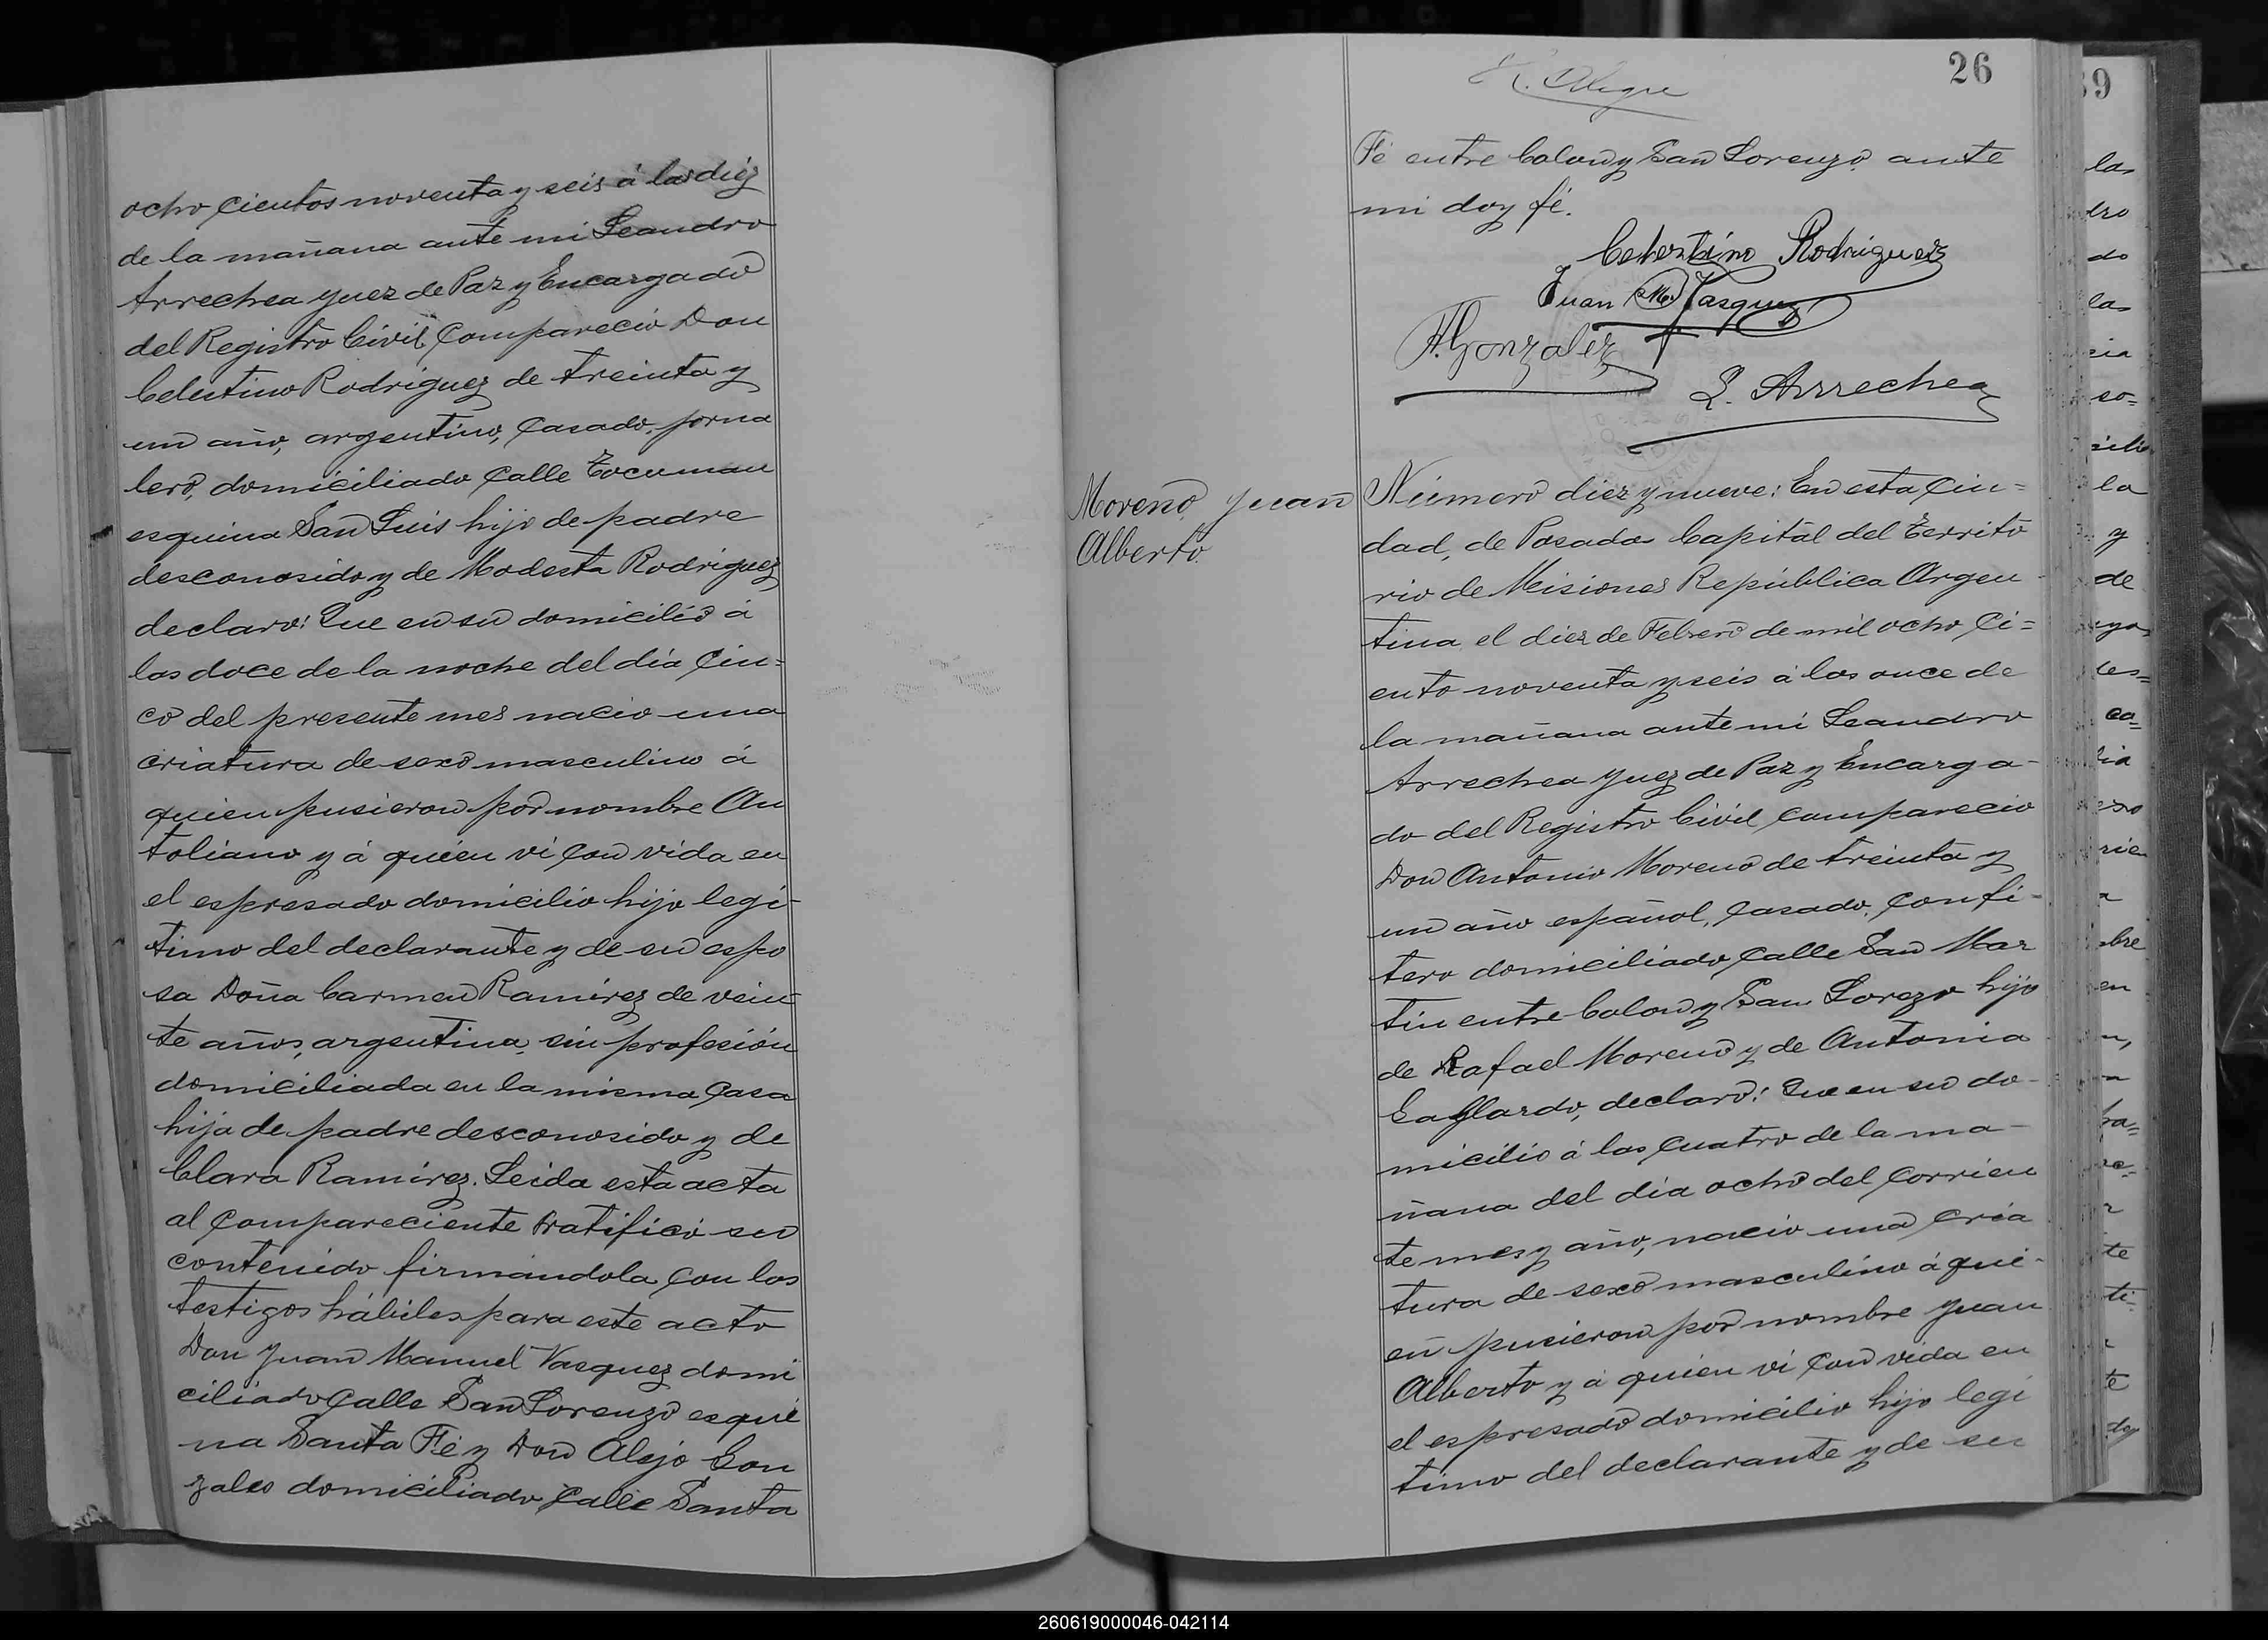 ocho cientos noventa y seis á las diez
de la mañana ante mi Leandro
Arrechea Juez de Paz y Encargado
del Registro Civil Compareció Don
Celestino Rodriguez de treinta y
un año, argentino, Casado, jorna
lero, domiciliado Calle Tocuman
esquina San Luis hijo de padre
desconosido y de Modesta Rodriguez
declaro: Que en su domicilio á
las doce de la noche del día Cin=
co del presente mes nacio una
criatura de sexo masculino á
quien pusieron por nombre An
toliano y á quien vi Con vida en
el espresado domicilio hijo legi-
timo del declarante y de su espo
sa Doña Carmen Ramirez de vein-
te años, argentina, sin profesión
domiciliada en la misma Casa
hija de padre desconosido y de
Clara Ramirez. Leida esta acta
al Compareciente Ratificó su
contenido firmándola Con los
testigos hábiles para este acto
Don Juan Manuel Vasquez domi
ciliado Calle San Lorenzo esqui
na Santa Fé y Don Alejo Gon
zales domiciliado Calle Santa
26
Fé entre Colon y San Lorenzo ante
mi doy fé.
Celestino Rodriguez
Juan M. Vasquez
A. Gonzalez
L. Arrechea
Moreno Juan
Alberto.
Número diez y nueve: En esta Ciu=
dad, de Posadas Capital del Territo
rio de Misiones República Argen-
tina el diez de Febrero de mil ocho Ci=
ento noventa y seis á las once de
la mañana ante mi Leandro
Arrechea Juez de Paz y Encarga-
do del Registro Civil Comparecio
Don Antonio Moreno de treinta y
un año español, Casado, Confi-
tero domiciliado Calle San Mar
tin entre Colon y San Lorezo hijo
de Rafael Moreno y de Antonia
Gallardo, declaro: Que en su do-
micilio á las Cuatro de la ma-
ñana del día ocho del Corrien
te mes y año, nacio una Cria
tura de sexo masculino á qui-
en pusieron por nombre Juan
Alberto y á quien vi Con vida en
el espresado domicilio hijo legi
timo del declarante y de su
39
las
dro
do
las
cia
so=
cilio
la
y
de
les=
ca=
lia
exo
rien
bre
en
te
ti-
te
doy
260619000046-042114